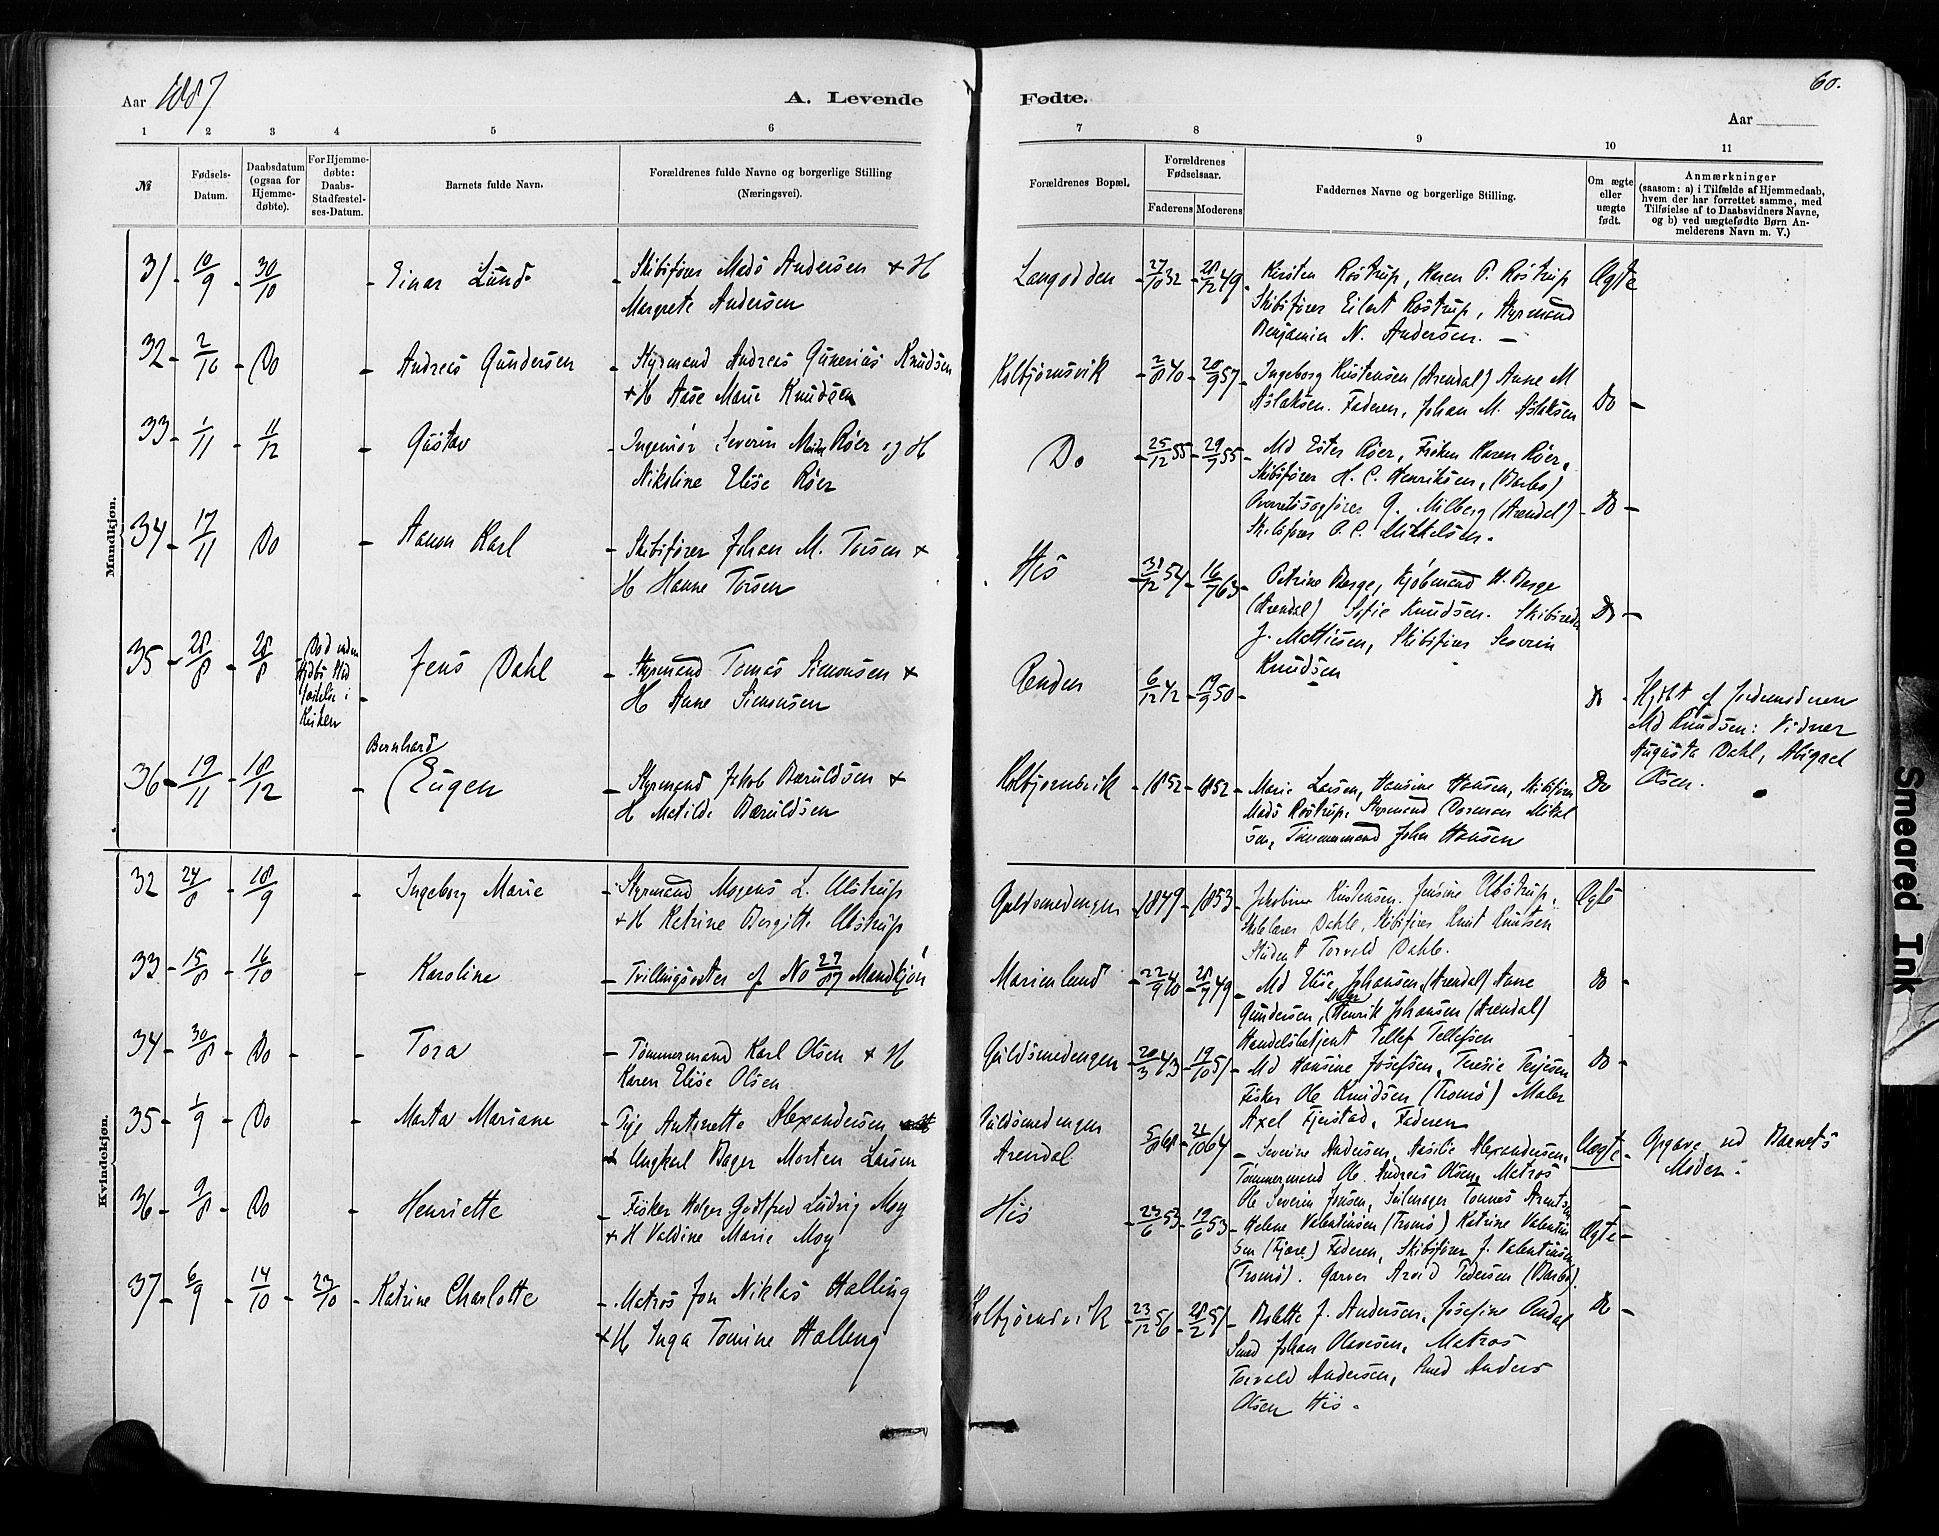 Aar 1887
A. Levende
Fødte.
60.
Aar
1 2 3 4 5 6 7 8 9 10 11
№
Fødsels-
Datum.
Daabsdatum
(ogsaa for
Hjemme-
døbte).
For Hjemme-
døbte:
Daabs-
Stadfæstel-
ses-Datum.
Barnets fulde Navn.
Forældrenes fulde Navne og borgerlige Stilling
(Næringsvei).
Forældrenes Bopæl.
Forældrenes
Fødselsaar.
Faderens Moderens
Faddernes Navne og borgerlige Stilling.
Om ægte
eller
uægte
født.
Anmærkninger
(saasom: a) i Tilfælde af Hjemmedaab,
hvem der har forrettet samme, med
Tilføielse af to Daabsvidners Navne,
og b) ved uægtefødte Børn An-
melderens Navn m. V.)
Mandkjøn.
31 - 10/9 - 30/10 - Einar Lund - Skibsfører Mads Andersen + H
Margrete Andersen
Langodden - 27/10 32 - 28/12 49 - Kirsten Røstrup, Karen P. Røstrup
Skibsfører Eilert Røstrup, Styrmand
Benjamin N. Andersen. -
Ægte
32 - 2/10 - Do - Andreas Gundersen - Styrmand Andreas Gunerius Knudsen
+ H Aase Marie Knudsen
Kolbjørnsvik - 2/8 40 - 28/9 57 - Ingeborg Kristensen (Arendal) Anne M
Aslaksen. Faderen, Johan M. Aslaksen
Do -
33 - 1/11 - 11/12 - Gustav - Ingeniør Severin Røer og H
Nikoline Elise Røer
Do - 25/12 55 - 29/9 55 - Md Ester Røer, Frøken Karen Røer,
Skibsfører H. C. Henriksen, (Barbo)
Overretssagfører G. Milberg (Arendal)
Skibsfører P. C. Mikkelsen.
- Do -
34 - 17/11 - Do - Aanon Karl - Skibsfører Johan M. Torsen +
H Hanne Torsen
His - 31/12 54 - 16/7 63 - Petrine Berge, Kjøbmand H. Berge
(Arendal) Sofie Knudsen. Skibsreder
J. Mathiesen, Skibsfører Severin
Knudsen
Do -
35 - 28/8 - 28/8 - Død uden
i
Kirken
- Jens Dahl - Styrmand Tomas Simonsen +
H Anne Simonsen
Renden 6/12 42 - 19/9 50 -
Do - Hjdbt af Jordemoderen
Md Knudsen: Vidner
Augusta Dahl, Abigael
Olsen.
36 - 19/11 - 18/12 - Bernhard
(Eugen - Styrmand Jakob Bæruldsen +
H Matilde Bæruldsen
Kolbjørnsvik - 1852 - 1852 - Marie Larsen, Hansine Hansen, Skibsfører
Mads Røstrup, Styrmand Mikal
sen, Tømmermand Johan Hansen
Do
Kvindekjøn.
32 24/8 - 18/9 - Ingeborg Marie - Styrmand Mogens L. Ulstrup
+ H Katrine Bergitte Ulstrup
Guldsmedengen - 1849 - 1853 - Jakobine Kristensen. Jensine Ulstrup,
Skolelærer Dahle, Skibsfører Knut Knutsen
Student Torvald Dahle.
Ægte
33 - 15/8 - 16/10 - Karoline - Tvillingsøster af No 27/87 Mandkjøn
Marienlund - 22/9 40 - 28/7 49 - Md Elise Johansen, (Arendal) Anne
Gundersen, Henrik Johansen (Arendal)
Handelsbetjent Tellef Tellefsen
Do -
34 - 30/8 - Do - - Tora - Tømmermand Karl Olsen + H
Karen Elise Olsen
Guldsmedengen 20/3 43 - 19/10 51 - Md Hansine Josefsen, Teresie Terjesen
Fisker Ole Knudsen (Tromø) Maler
Axel Fjerstad, Faderen
Do -
35 - 1/9 - Do - Marta Mariane - Pige Antonette Alexandersen
+ Ungkarl Bager Morten Larsen
Guldsmedengen
Arendal
5/8 61 - 21/10 64 - Severine Andersen, Alexandersen,
Tømmermand Ole Andreas Olsen, Matros
Ole Severin Jensen, Seilmager Tønnes Arentsen
Uægte - Opgave ved Barnets
Moder.
36 - 9/8 - Do - Henriette - Fisker Holger Godtfred Ludvig Moy
+ H Valdine Marie Moy
His - 23/6 53 - 19/6 53 - Helene Valentinsen (Tromø) Katrine Valentin
sen (Fjære) Faderen, Skibsfører J. Valentinsen
(Tromø). Garver Arvid Pedersen (Barbo).
Ægte -
37 - 6/9 - 14/10 - 23/10 - Katrine Charlotte - Matros Jon Niklas Halling
+ H Inga Tomine Halling
Kolbjørnsvik - 23/12 56 - 28/2 51 - Bolette J. Andersen, Josefine
Smed Johan Olavesen, Matros
Torvald Andersen, Smed Anders
Olsen His.
Do -
Smeared Ink